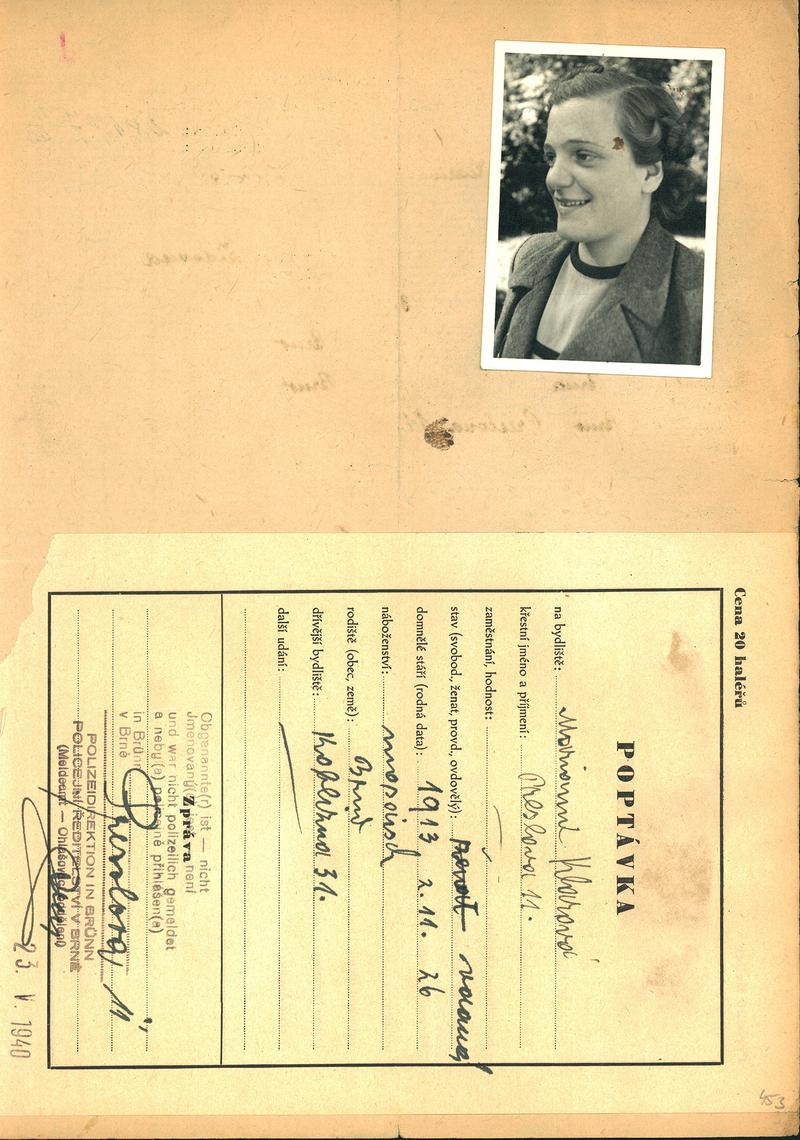 Cena 20 haléřů
POPTÁVKA
na bydliště: Marianne Klarová
křestní jméno a příjmení: Preslova 11.
zaměstnání, hodnost:
stav (svobod., ženat, provd., ovdovělý):
domnělé stáří (rodná data): 1913 2. 11. 26
náboženství: mosaisch
rodiště (obec, země): Brünn
dřívější bydliště: Koberna 31.
další udání:
Zpráva
Obgenannte(r) ist — nicht
Jmenovaný(á) není
und war nicht polizeilich gemeldet
a neby(a) přihlášen(a)
in Brünn
v Brně
Preslova 11
POLIZEIDIREKTION IN BRÜNN
POLICEJNÍ ŘEDITELSTVÍ V BRNĚ
(Meldeamt — Ohlašovací oddělení)
23. V. 1940
453